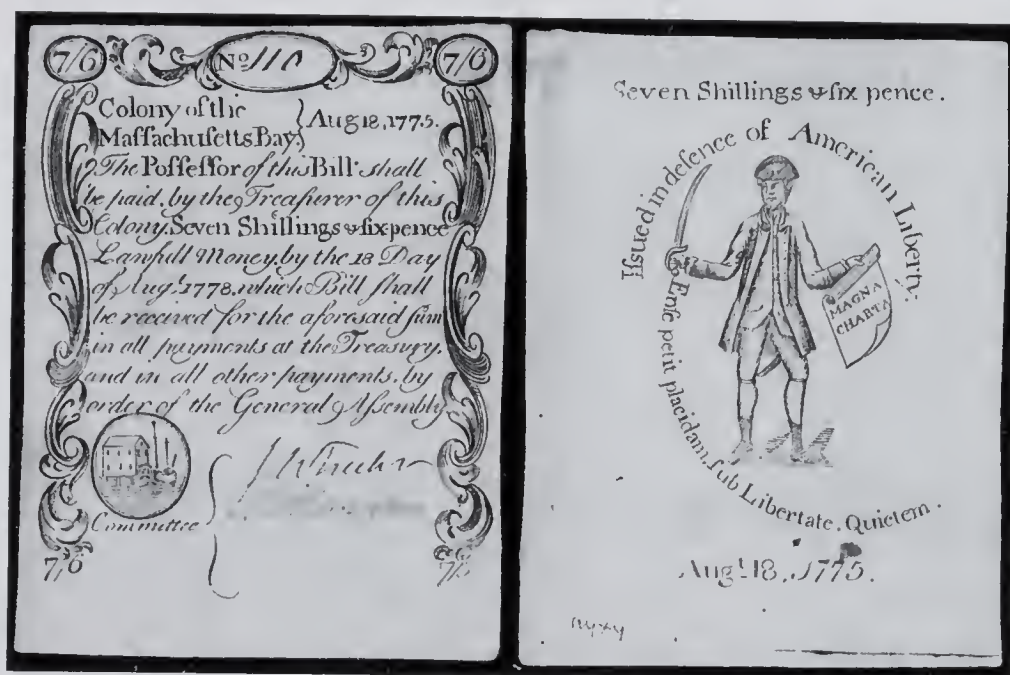 7/6 No 110 7/6
Colony of the } Aug 18, 1775.
Maſſachuſetts Bay }
The Poſſeſſor of this Bill ſhall
be paid, by the Treaſurer of this
Colony, Seven Shillings & ſix pence
Lawfull Money, by the 18 Day
of Augt. 1778, which Bill ſhall
be received for the aforeſaid ſum
in all payments at the Treaſury,
and in all other payments, by
order of the General Aſſembly
Committee
7/6 7/6
Seven Shillings & ſix pence.
Iſsued in defence of American Liberty.
MAGNA
CHARTA
Enſe petit placidam, ſub Libertate, Quietem.
Augt. 18, 1775.